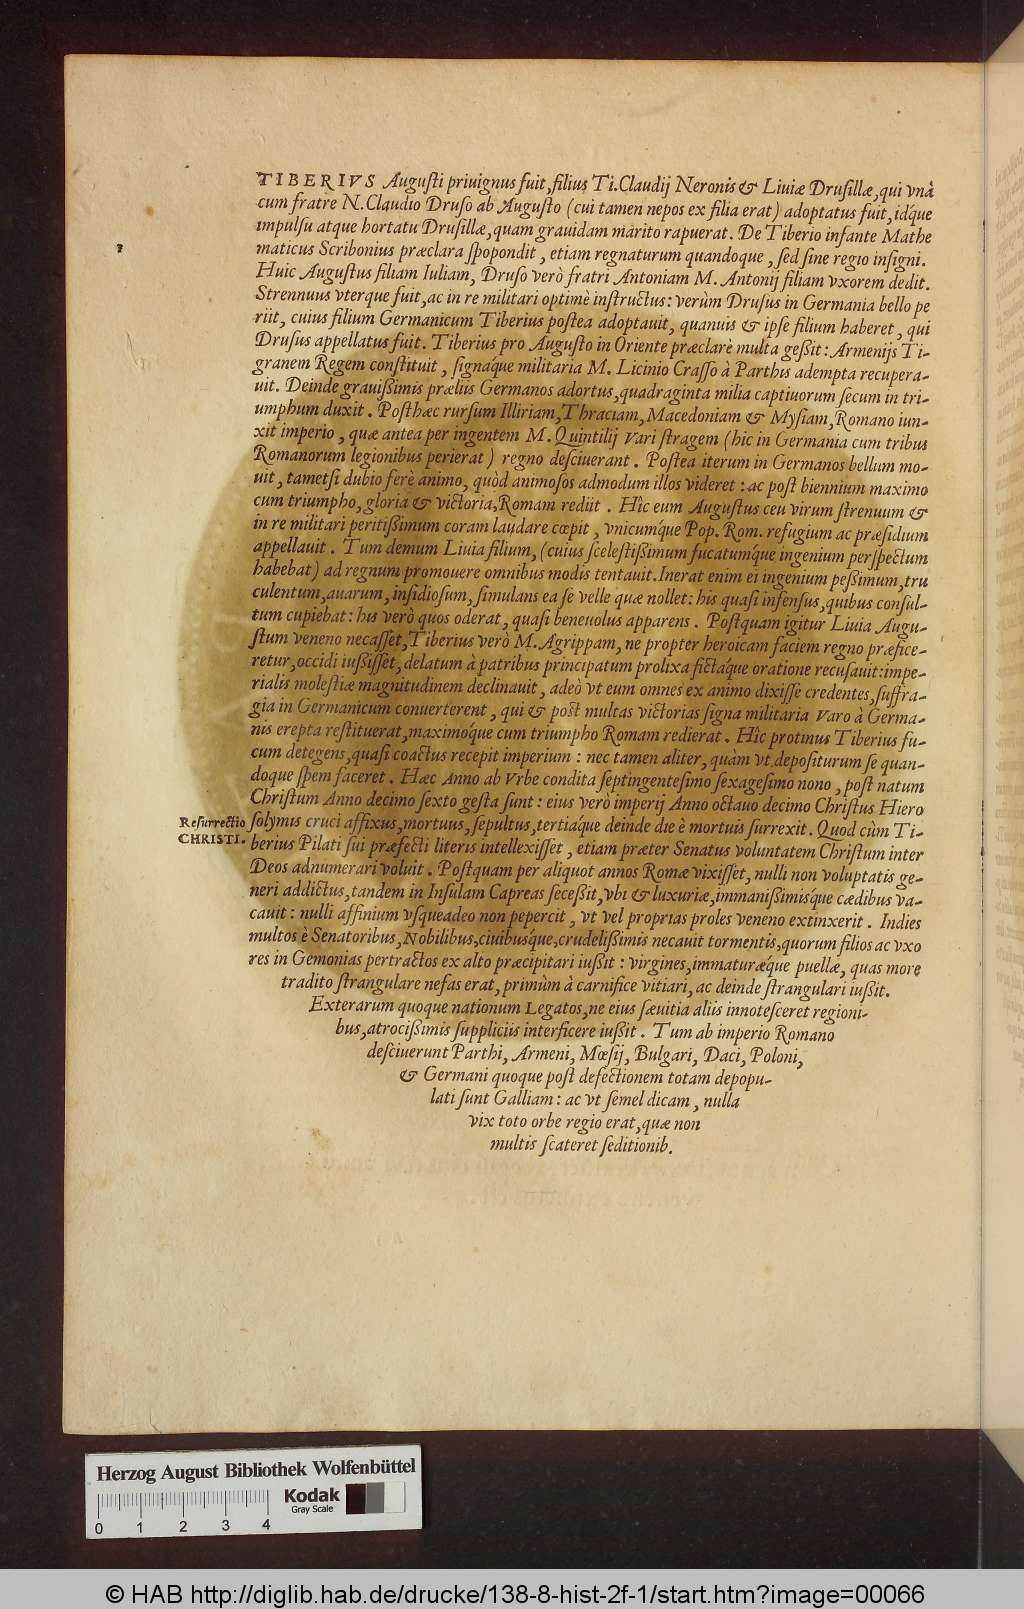 TIBERIVS Auguſti priuignus fuit, filius Ti. Claudij Neronis & Liuiæ Druſillæ, qui vnà
cum fratre N. Claudio Druſo ab Auguſto (cui tamen nepos ex filia erat) adoptatus fuit, idq́ue
impulſu atque hortatu Druſillæ, quam grauidam marito rapuerat. De Tiberio infante Mathe
maticus Scribonius præclara ſpopondit, etiam regnaturum quandoque, ſed ſine regio inſigni.
Huic Auguſtus filiam Iuliam, Druſo verò fratri Antoniam M. Antonij filiam vxorem dedit.
Strennuus vterque fuit, ac in re militari optimè inſtructus: verùm Druſus in Germania bello pe
riit, cuius filium Germanicum Tiberius poſtea adoptauit, quanuis & ipſe filium haberet, qui
Druſus appellatus fuit. Tiberius pro Auguſto in Oriente præclarè multa geßit: Armenijs Ti-
granem Regem conſtituit, ſignaq́ue militaria M. Licinio Craſſo à Parthis adempta recupera-
uit. Deinde grauißimis præliis Germanos adortus, quadraginta milia captiuorum ſecum in tri-
umphum duxit. Poſthæc rurſum Illiriam, Thraciam, Macedoniam & Myſiam, Romano iun-
xit imperio, quæ antea per ingentem M. Quintilij Vari ſtragem (hic in Germania cum tribus
Romanorum legionibus perierat) regno deſciuerant. Poſtea iterum in Germanos bellum mo-
uit, tametſi dubio ferè animo, quòd animoſos admodum illos videret: ac poſt biennium maximo
cum triumpho, gloria & victoria, Romam rediit. Hîc eum Auguſtus ceu virum ſtrenuum &
in re militari peritißimum coram laudare cœpit, vnicumq́ue Pop. Rom. refugium ac præſidium
appellauit. Tum demum Liuia filium, (cuius ſceleſtißimum fucatumq́ue ingenium perſpectum
habebat) ad regnum promouere omnibus modis tentauit. Inerat enim ei ingenium peßimum, tru
culentum, auarum, inſidioſum, ſimulans ea ſe velle quæ nollet: his quaſi infenſus, quibus conſul-
tum cupiebat: his verò quos oderat, quaſi beneuolus apparens. Poſtquam igitur Liuia Augu-
ſtum veneno necaſſet, Tiberius verò M. Agrippam, ne propter heroicam faciem regno præfice-
retur, occidi iußiſſet, delatum à patribus principatum prolixa fictaq́ue oratione recuſauit: impe-
rialis moleſtiæ magnitudinem declinauit, adeò vt eum omnes ex animo dixiſſe credentes, ſuffra-
gia in Germanicum conuerterent, qui & poſt multas victorias ſigna militaria Varo à Germa-
nis erepta reſtituerat, maximoq́ue cum triumpho Romam redierat. Hîc protinus Tiberius fu-
cum detegens, quaſi coactus recepit imperium: nec tamen aliter, quàm vt depoſiturum ſe quan-
doque ſpem faceret. Hæc Anno ab Vrbe condita ſeptingenteſimo ſexageſimo nono, poſt natum
Chriſtum Anno decimo ſexto geſta ſunt: eius verò imperij Anno octauo decimo Chriſtus Hiero
Reſurrectio
CHRISTI.
ſolymis cruci affixus, mortuus, ſepultus, tertiaq́ue deinde die è mortuis ſurrexit. Quod cùm Ti-
berius Pilati ſui præfecti literis intellexiſſet, etiam præter Senatus voluntatem Chriſtum inter
Deos adnumerari voluit. Poſtquam per aliquot annos Romæ vixiſſet, nulli non voluptatis ge-
neri addictus, tandem in Inſulam Capreas ſeceßit, vbi & luxuriæ, immanißimisq́ue cædibus va-
cauit: nulli affinium vſqueadeo non pepercit, vt vel proprias proles veneno extinxerit. Indies
multos è Senatoribus, Nobilibus, ciuibusq́ue, crudelißimis necauit tormentis, quorum filios ac vxo
res in Gemonias pertractos ex alto præcipitari iußit: virgines, immaturæq́ue puellæ, quas more
tradito ſtrangulare nefas erat, primùm à carnifice vitiari, ac deinde ſtrangulari iußit.
Exterarum quoque nationum Legatos, ne eius ſæuitia aliis innoteſceret regioni-
bus, atrocißimis ſuppliciis interficere iußit. Tum ab imperio Romano
deſciuerunt Parthi, Armeni, Mœſij, Bulgari, Daci, Poloni,
& Germani quoque poſt defectionem totam depopu-
lati ſunt Galliam: ac vt ſemel dicam, nulla
vix toto orbe regio erat, quæ non
multis ſcateret ſeditionib.
Herzog August Bibliothek Wolfenbüttel
Kodak
Gray Scale
0 1 2 3 4
© HAB http://diglib.hab.de/drucke/138-8-hist-2f-1/start.htm?image=00066